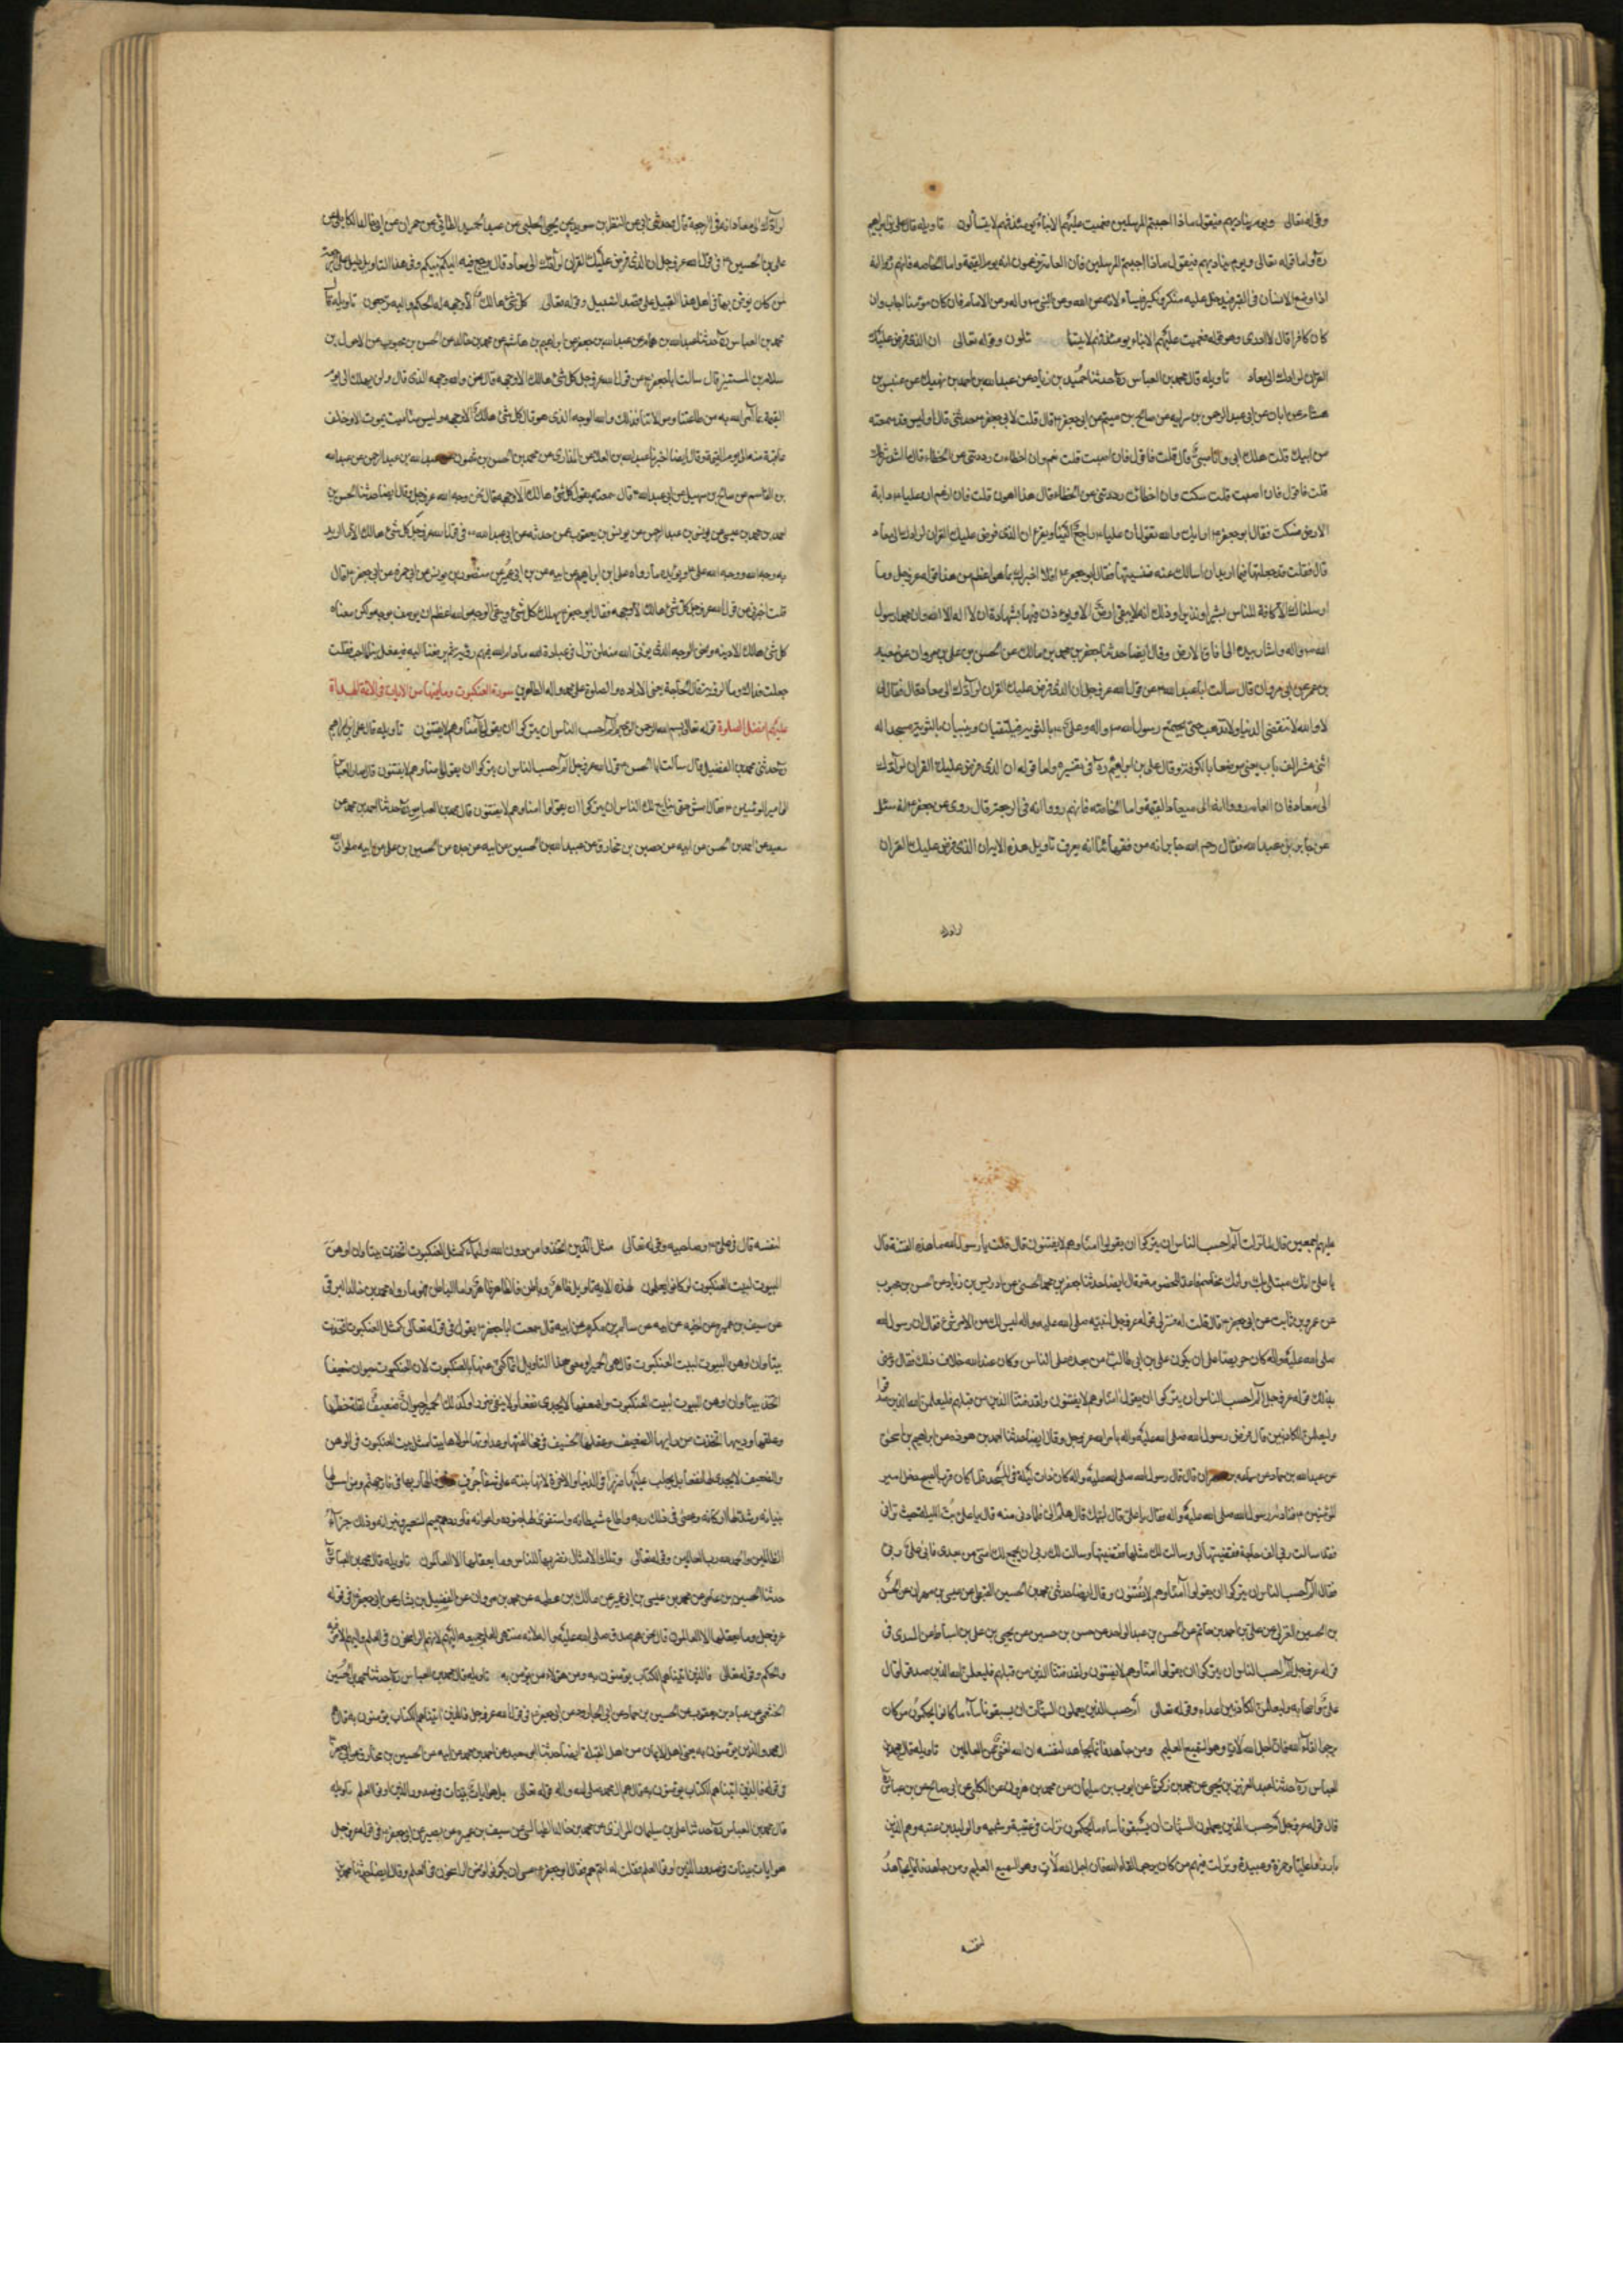 وقوله تعالى ويوم يناديهم فيقول ماذا اجبتم المرسلين فعميت عليهم الانباء يومئذ فهم لا يتسألون تاويله قال علي بن ابراهيم
ره واما قوله تعالى ويوم يناديهم فيقول ماذا اجبتم المرسلين فان العامة يزعمون انه يوم القيمة واما الخاصه فانهم
اذا وضع الانسان في القبر فيدخل عليه منكر ونكير عن الله وعن النبي واله وعن الامام فان كان مؤمنا اجاب وان
كان كافرا قال لا ادري وهو قوله فعميت عليهم الانباء يومئذ فهم لا يتسا ئلون وقوله تعالى ان الذي فرض عليك
القران لرادك الى معاد تاويله قال محمد بن العباس ره حدثنا حميد بن زياد عن عبد الله بن احمد بن نهيك عن عبيس بن
هشام عن ابان عن ابي عبد الرحمن بن عن صالح بن ميثم عن ابي جعفر قال قلت لابي جعفر حدثني قال اوليس قد سمعته
من ابيك قلت هلك ابي وانا صبي قال قلت فاقول فان اصبت قلت نعم وان اخطات رددتني عن الخطاء قال ما اشد شرطك
قلت فاقول فان اصبت سكت وان اخطات رددتني عن الخطاء قال هذا اهون قلت فان ازعم ان عليا دابة
الارض فسكت فقال ابو جعفر اراك والله تقول ان عليا راجع الينا ويقرء ان الذي فرض عليك القران لرادك الى معاد
قال فقلت قد جعلتها فيما اريد ان اسالك عنه فنسيتها فقال ابو جعفر افلا اخبرك بما هو اعظم من هذا قوله عز وجل وما
ارسلناك الا كافة للناس بشيرا ونذيرا وذلك انه لا يبقى ارض الا ويؤذن فيها بشهادة ان لا اله الا الله وان محمدا رسول
الله واله واشار بيده الى افاق الارض وقال ايضا حدثنا جعفر بن محمد بن مالك عن الحسن بن علي بن مروان عن سعيد
بن عمر عن ابي مروان قال سالت ابا عبد الله عن قول الله عز وجل ان الذي فرض عليك القران لرادك الى معاد قال فقال لي
لا والله لا تنقضي الدنيا ولا تذهب حتى يجتمع رسول الله واله وعلي بالثوية فيلتقيان ويبنيان بالثوية مسجدا له
اثنى عشر الف باب يعني موضعا بالكوفة وقال علي بن ابراهيم ره في تفسيره واما قوله ان الذي فرض عليك القران لرادك
الى معاد فان العامه رووا انه الى معاد القيمة واما الخاصه فانهم رووا انه في الرجعة قال روي عن جعفر انه سئل
عن جابر بن عبد الله فقال رحم الله جابر انه من فقهائنا انه يعرف تاويل هذه الاية ان الذي فرض عليك القران
لرادك
لرادك الى معاد انه في الرجعة قال وحدثني ابي عن النضر بن سويد عن يحيى الحلبي عن عبد الحميد الطائي عن حمران عن ابي خالد الكابلي عن
علي بن الحسين في قول الله عز وجل ان الذي فرض عليك القران لرادك الى معاد قال يرجع فيه اليكم نبيكم وفي هذا التاويل
وقوله تعالى كل شيء هالك الا وجهه له الحكم واليه ترجعون تاويله قال
محمد بن العباس ره حدثنا عبد الله بن همام عن عبد الله بن جعفر عن ابراهيم بن هاشم عن محمد بن خالد عن الحسن بن محبوب عن الاحول بن
سلام بن المستنير قال سالت ابا جعفر عن قول الله عز وجل كل شيء هالك الا وجهه قال نحن والله وجهه الذي قال ولن يهلك الى يوم
القيمة بما امر الله به من طاعتنا وموالاتنا فذلك والله الوجه الذي هو قال كل شيء هالك الا وجهه وليس منا ميت يموت الا وخلف
عاقبة منه الى يوم القيمة وقال ايضا اخبرنا عبد الله بن العلا عن المذاري عن محمد بن الحسن بن شمون عبد الله بن عبد الرحمن عن عبد الله
بن القاسم عن صالح بن سهل عن ابي عبد الله قال سمعته يقول كل شيء هالك الا وجهه قال نحن وجه الله عز وجل وقال ايضا حدثنا الحسين بن
احمد بن محمد بن عيسى عن يونس بن عبد الرحمن عن يونس بن يعقوب عمن حدثه عن ابي عبد الله في قول الله عز وجل كل شيء هالك الا ما اريد
به وجه الله ووجه الله علي ويؤيده ما رواه علي بن ابراهيم عن ابيه عن ابن ابي عمير عن منصور بن يونس عن ابي حمزه عن ابي جعفر قال
قلت اخبرني عن قول الله عز وجل كل شيء هالك الا وجهه فقال ابو جعفر يهلك كل شيء ويبقى الوجه والله اعظم ان يوصف بوجه ولكن معناه
كل شيء هالك الا دينه ونحن الوجه الذي يؤتى الله منه لن نزل في عباده
جعلت فداك وما الروية قال الحاجة يعني الارادة والصلوة على محمد واله الطاهرين سورة العنكبوت وما فيها من الايات في الائمة الهداة
عليهم افضل الصلوة قوله تعالى بسم الله الرحمن الرحيم الم احسب الناس ان يتركوا ان يقولوا امنا وهم لا يفتنون تاويله قال علي بن ابراهيم
ره حدثني محمد بن الفضيل قال سالت ابا الحسن عن قول الله عز وجل الم احسب الناس ان يتركوا ان يقولوا امنا وهم لا يفتنون قال جاء العباس
الى امير المؤمنين فقال امش حتى نبايع لك الناس ان يتركوا ان يقولوا امنا وهم لا يفتنون قال محمد بن العباس ره حدثنا احمد بن محمد بن
سعيد عن احمد بن الحسن عن ابيه عن حصين بن مخارق عن عبيد الله بن الحسين عن ابيه عن جده عن الحسين بن علي عن ابيه صلوات الله
عليهم اجمعين قال لما نزلت الم احسب الناس ان يتركوا ان يقولوا امنا وهم لا يفتنون قال قلت يا رسول الله ما هذه الفتنة قال
يا علي انك مبتلى بك وانك مخاصم فاعد للخصومة وقال ايضا حدثنا جعفر بن محمد الحسني عن ادريس بن زياد عن الحسن بن محبوب
عن عمرو بن ثابت عن ابي جعفر قال قلت له فسر لي قوله عز وجل لنبيه صلى الله عليه واله ليس لك من الامر شيء فقال ان رسول الله
صلى الله عليه واله كان حريصا على ان يكون علي بن ابي طالب من بعده على الناس وكان عند الله خلاف ذلك فقال وعنى
بذلك قوله عز وجل الم احسب الناس ان يتركوا ان يقولوا امنا وهم لا يفتنون ولقد فتنا الذين من قبلهم فليعلمن الله الذين صدقوا
وليعلمن الكاذبين قال فرضي رسول الله صلى الله عليه واله بامر الله عز وجل وقال ايضا حدثنا احمد بن هوذه عن ابراهيم بن اسحق
عن عبد الله بن حماد عن سماعه بن مهران قال قال رسول الله صلى الله عليه واله كان ذات ليلة في المسجد فلما كان قرب الصبح دخل امير
المؤمنين فناداه رسول الله صلى الله عليه واله فقال يا علي قال لبيك قال هلم الي فلما دنى منه قال يا علي بت الليلة حيث تراني
فقد سالت ربي الف حاجة فقضيتها لي وسالت لك مثلها فقضيتها وسالت لك ربي ان يجمع لك امتي من بعدي فابى علي ربي
فقال الم احسب الناس ان يتركوا ان يقولوا امنا وهم لا يفتنون وقال ايضا حدثني محمد بن الحسين القبيطي عن عيسى بن مهران عن الحسن
بن الحسين العرني عن علي بن احمد بن حاتم عن الحسن بن عبد الواحد عن حسن بن حسين عن يحيى بن علي بن اسباط عن السدي في
قوله عز وجل الم احسب الناس ان يتركوا ان يقولوا امنا وهم لا يفتنون ولقد فتنا الذين من قبلهم فليعلمن الله الذين صدقوا قال
علي واصحابه وليعلمن الكاذبين اعداءه وقوله تعالى ام حسب الذين يعملون السيئات ان يسبقونا ساء ما يحكمون من كان
يرجوا لقاء الله فان اجل الله لات وهو السميع العليم ومن جاهد فانما يجاهد لنفسه ان الله لغني عن العالمين تاويله قال محمد بن
العباس ره حدثنا عبد العزيز بن يحيى عن محمد بن زكريا عن ايوب بن سليمان عن محمد بن مروان عن الكلبي عن ابي صالح عن ابن عباس
قال قوله عز وجل ام حسب الذين يعملون السيئات ان يسبقونا ساء ما يحكمون نزلت في عتبة وشيبه والوليد بن عتبه وهم الذين
بارزوا عليا وحمزة وعبيدة ونزلت فيهم من كان يرجوا لقاء الله فان اجل الله لات وهو السميع العليم ومن جاهد فانما يجاهد
لنفسه
لنفسه قال في علي وصاحبيه وقوله تعالى مثل الذين اتخذوا من دون الله اولياء كمثل العنكبوت اتخذت بيتا وان اوهن
البيوت لبيت العنكبوت لو كانوا يعلمون لهذه الاية تاويل ظاهر وباطن فالظاهر ظاهر واما الباطن فهو ما رواه محمد بن خالد البرقي
عن سيف بن عميرة عن اخيه عن ابيه عن سالم بن مكرم عن ابيه قال سمعت ابا جعفر يقول في قوله تعالى كمثل العنكبوت اتخذت
بيتا وان اوهن البيوت لبيت العنكبوت قال هي الحميراء ومعنى هذا التاويل انما كنى عنها بالعنكبوت لان العنكبوت حيوان ضعيف
اتخذ بيتا وان اوهن البيوت لبيت العنكبوت واضعفها لا يجدي نفعا ولا ينفي ضررا وكذلك الحميراء حيوان ضعيف لقلة حظها
وعقلها ودينها اتخذت من رايها الضعيف وعقلها السخيف في مخالفتها وعداوتها لمولاها بيتا مثل بيت العنكبوت في الوهن
والضعف لا يجدي لها نفعا بل يجلب عليها ضررا في الدنيا والاخرة لانها بنته على شفا جرف هار فانهار بها في نار جهنم ومن اسس لها
بنيانه وشد لها اركانه وعصى في ذلك ربه واطاع شيطانه واستغوى لها جنوده واعوانه فاوردهم حميم السعير ونيرانه وذلك جزاء
الظالمين والحمد لله رب العالمين وقوله تعالى وتلك الامثال نضربها للناس وما يعقلها الا العالمون تاويله قال محمد بن العباس ره
حدثنا الحسين بن عامر عن محمد بن عيسى بن ابي عمير عن مالك بن عطيه عن محمد بن مروان عن الفضيل بن يسار عن ابي جعفر في قوله
عز وجل وما يعقلها الا العالمون قال نحن هم صدق صلى الله عليه
والحكم وقوله تعالى فالذين اتيناهم الكتاب يؤمنون به ومن هؤلاء من يؤمن به تاويله قال محمد بن العباس ره حدثنا محمد بن الحسين
الخثعمي عن عباد بن يعقوب عن الحسين بن حماد عن ابي الجارود عن ابي جعفر في قول الله عز وجل فالذين اتيناهم الكتاب يؤمنون به قال
ال محمد والذين يؤمنون به يعني اهل الايمان من اهل القبلة ايضا حدثنا ابو سعيد عن احمد بن محمد عن ابيه عن الحسين بن مخارق عن ابي
في قوله فالذين اتيناهم الكتاب يؤمنون به قال هم ال محمد صلى الله عليه واله قوله تعالى بل هو ايات بينات في صدور الذين اوتوا العلم تاويله
قال محمد بن العباس ره حدثنا علي بن سليمان الزراري عن محمد بن خالد الطيالسي عن سيف بن عميره عن ابي بصير عن ابي جعفر في قوله عز وجل
هو ايات بينات في صدور الذين اوتوا العلم فقلت له انتم هم فقال ابو جعفر من عسى ان يكونوا ونحن الراسخون في العلم وقال ايضا حدثنا محمد بن